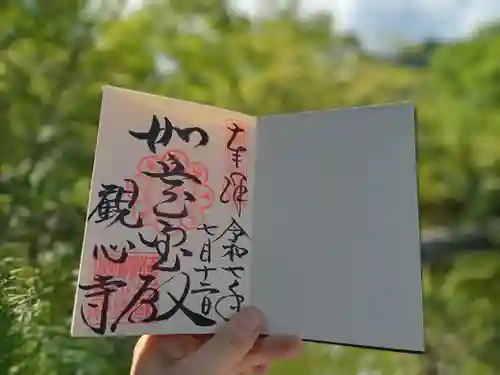 奉拝
令和七年
七月十二日
如意宝殿
観心寺